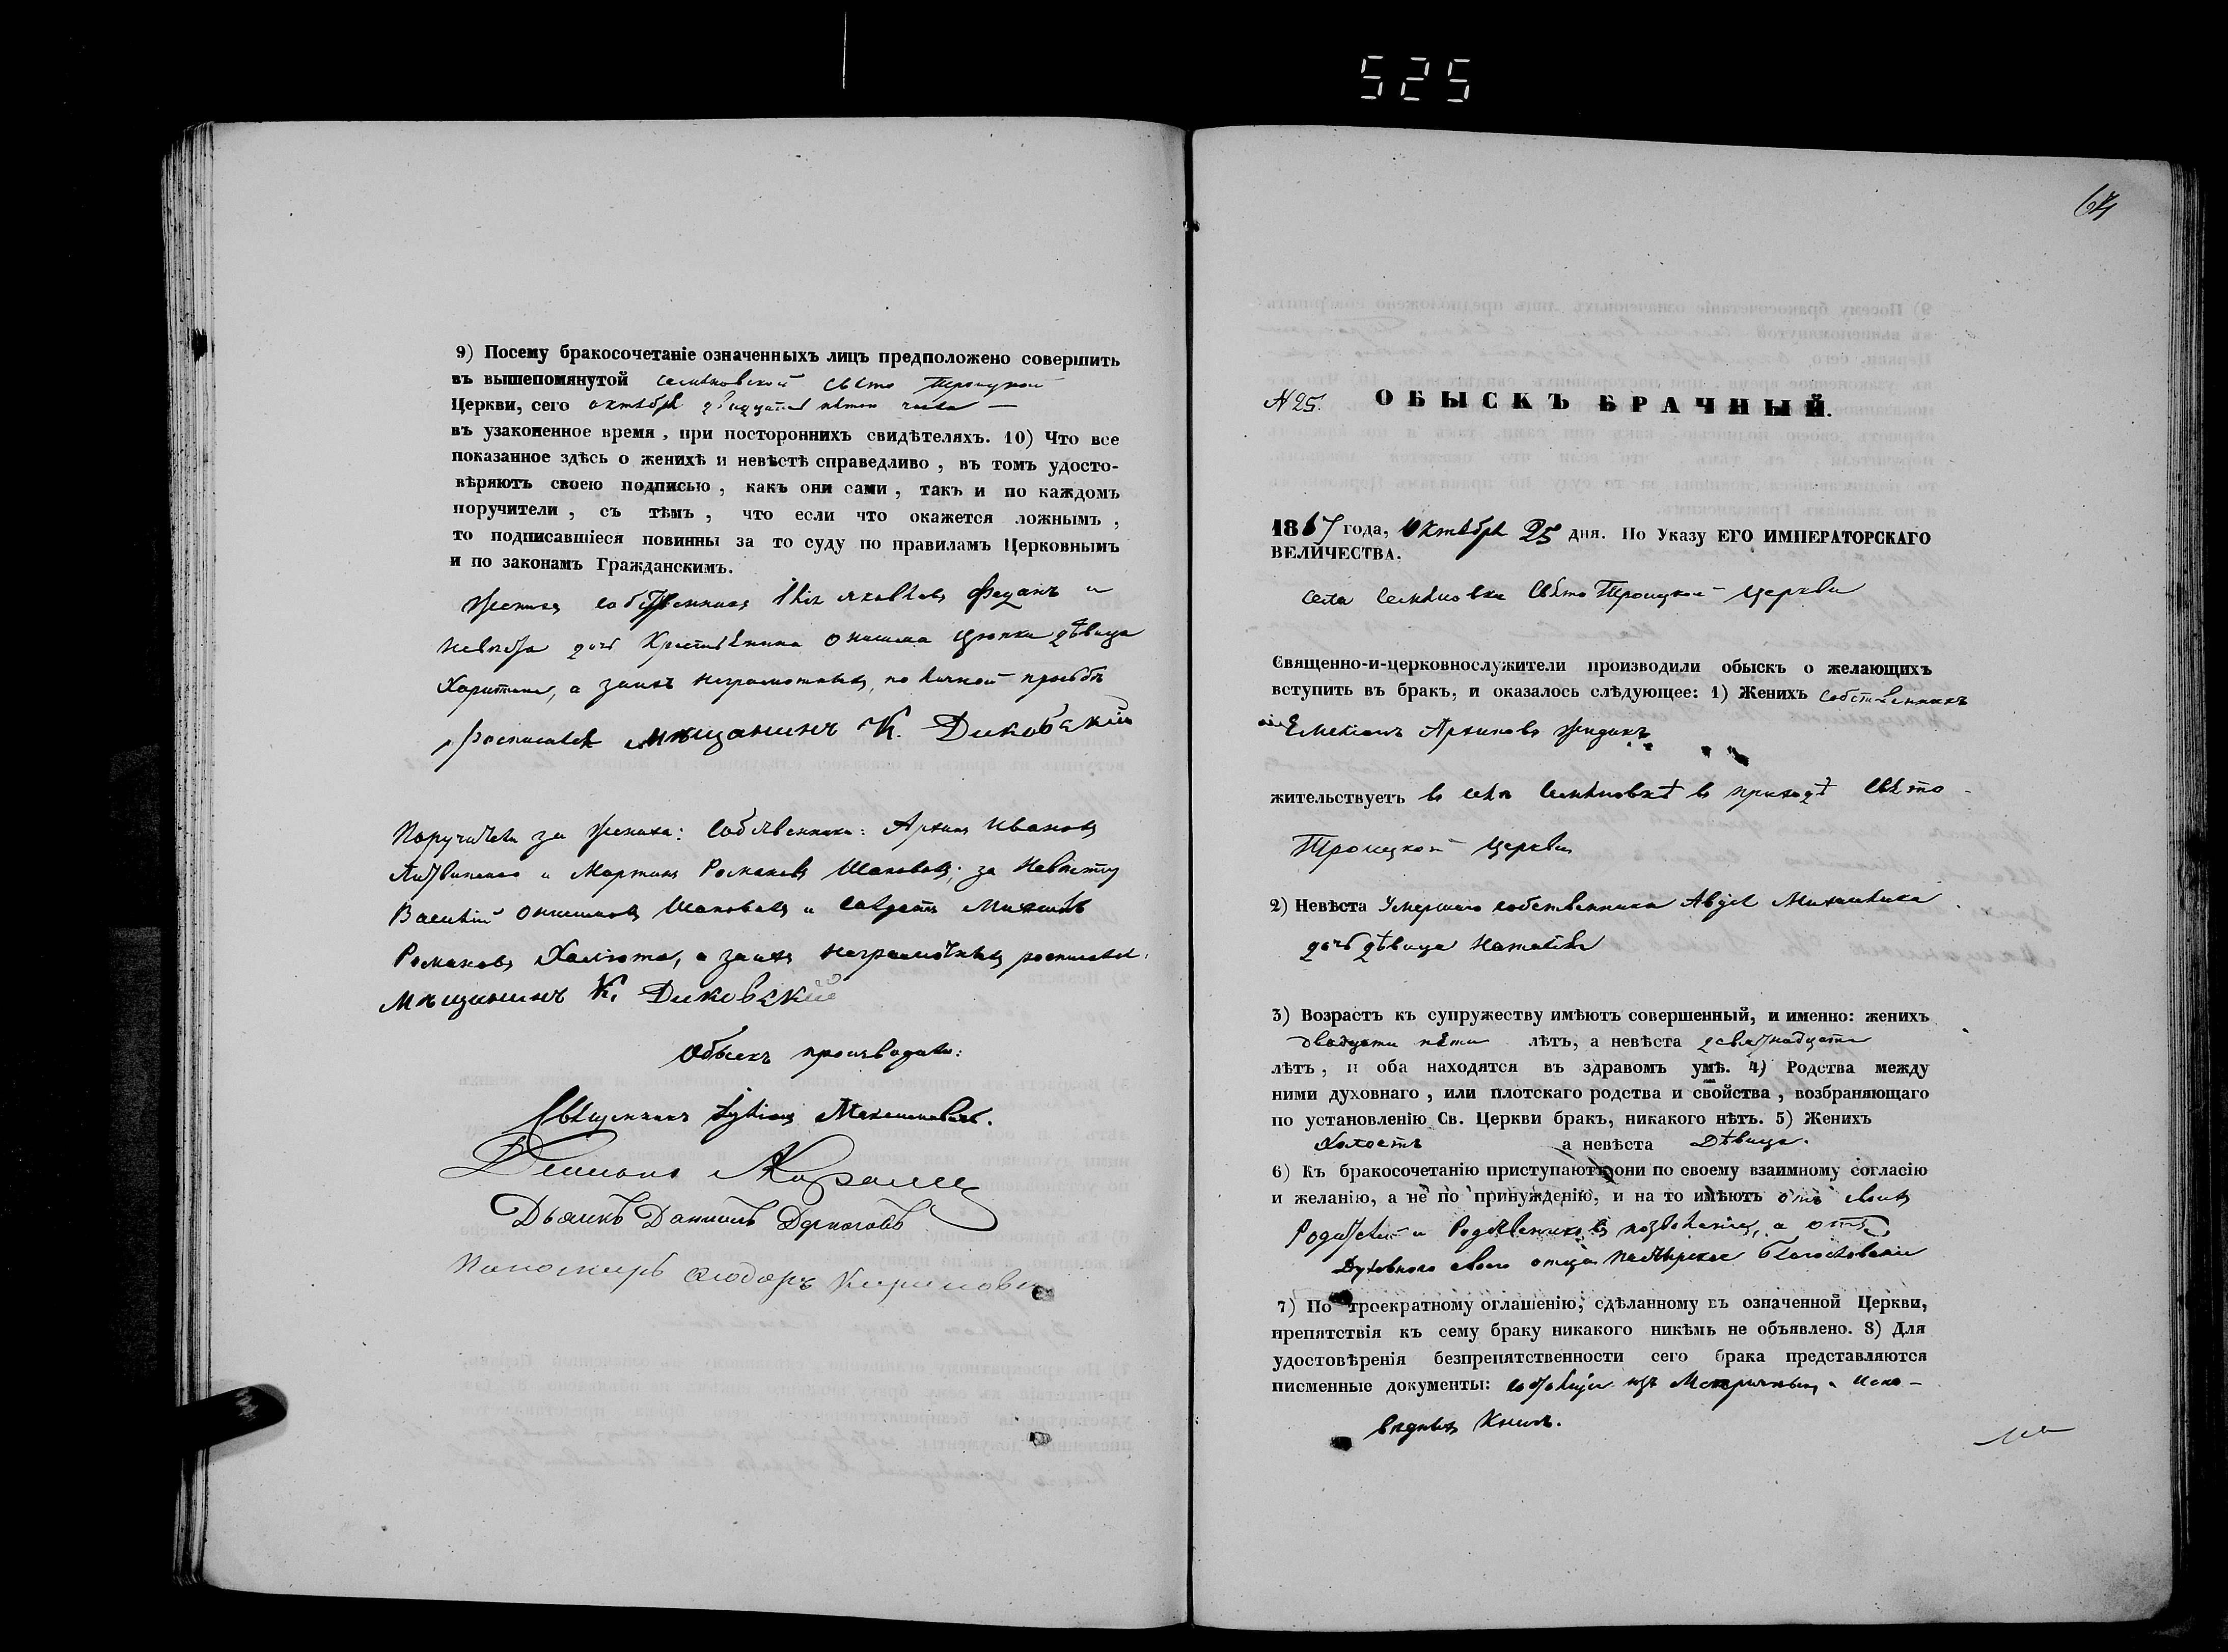 525
9) Посему бракосочетаніе означенныхъ лицъ предположено совершить
въ вышепомянутой Семяновской Свято Троицкой
Церкви, сего октября двадцать пятого числа —
въ узаконенное время, при постороннихъ свидѣтеляхъ. 10) Что все
показанное здѣсь о женихѣ и невѣстѣ справедливо, въ томъ удосто-
вѣряютъ своею подписью, какъ они сами, такъ и по каждомъ
поручители, съ тѣмъ, что если что окажется ложнымъ,
то подписавшіеся повинны за то суду по правиламъ Церковнымъ
и по законамъ Гражданскимъ.
Женихъ собственникъ Яковлевъ и
невѣста дочь Крестьянина Онисима дѣвица
а за нихъ неграмотныхъ, по личной просьбѣ
росписался мѣщанинъ К. Диковскій
Поручители за Жениха: Собственники: Архипъ Ивановъ
Литвиненко и Мартинъ Романовъ Шаповалъ; за Невѣсту
Василій Онисимовъ Шаповалъ и
Романовъ а за нихъ неграмотныхъ росписался
Мѣщанинъ К. Диковскій
Обыскъ производили:
Священникъ Максимовичъ.
Дьячкъ Даніилъ
Пономарь Ѳеодоръ
64
N 25.
ОБЫСКЪ БРАЧНЫЙ.
1867 года, Октября 25 дня. По Указу ЕГО ИМПЕРАТОРСКАГО
ВЕЛИЧЕСТВА.
села Семяновки Свято Троицкой Церкви
Священно-и-церковнослужители производили обыскъ о желающихъ
вступить въ бракъ, и оказалось слѣдующее: 1) Женихъ собственникъ
Емеліанъ Архиповъ
жительствуетъ въ селѣ Семяновкѣ въ приходѣ Свято-
Троицкой Церкви
2) Невѣста Умершаго собственника
дочь дѣвица Наталія
3) Возрастъ къ супружеству имѣютъ совершенный, и именно: женихъ
двадцати пяти лѣтъ, а невѣста девятнадцати
лѣтъ, и оба находятся въ здравомъ умѣ. 4) Родства между
ними духовнаго, или плотскаго родства и свойства, возбраняющаго
по установленію Св. Церкви бракъ, никакого нѣтъ. 5) Женихъ
Холостъ а невѣста Дѣвица.
6) Къ бракосочетанію приступаютъ они по своему взаимному согласію
и желанію, а не по принужденію, и на то имѣютъ отъ своихъ
Родителей и Родственниковъ позволеніе, а отъ
Духовнаго своего отца пастырское благословеніе
7) По троекратному оглашенію, сдѣланному въ означенной Церкви,
препятствія къ сему браку никакого никѣмъ не объявлено. 8) Для
удостовѣренія безпрепятственности сего брака представляются
писменные документы: изъ Метричныхъ и Испо-
вѣдныхъ Книгъ.